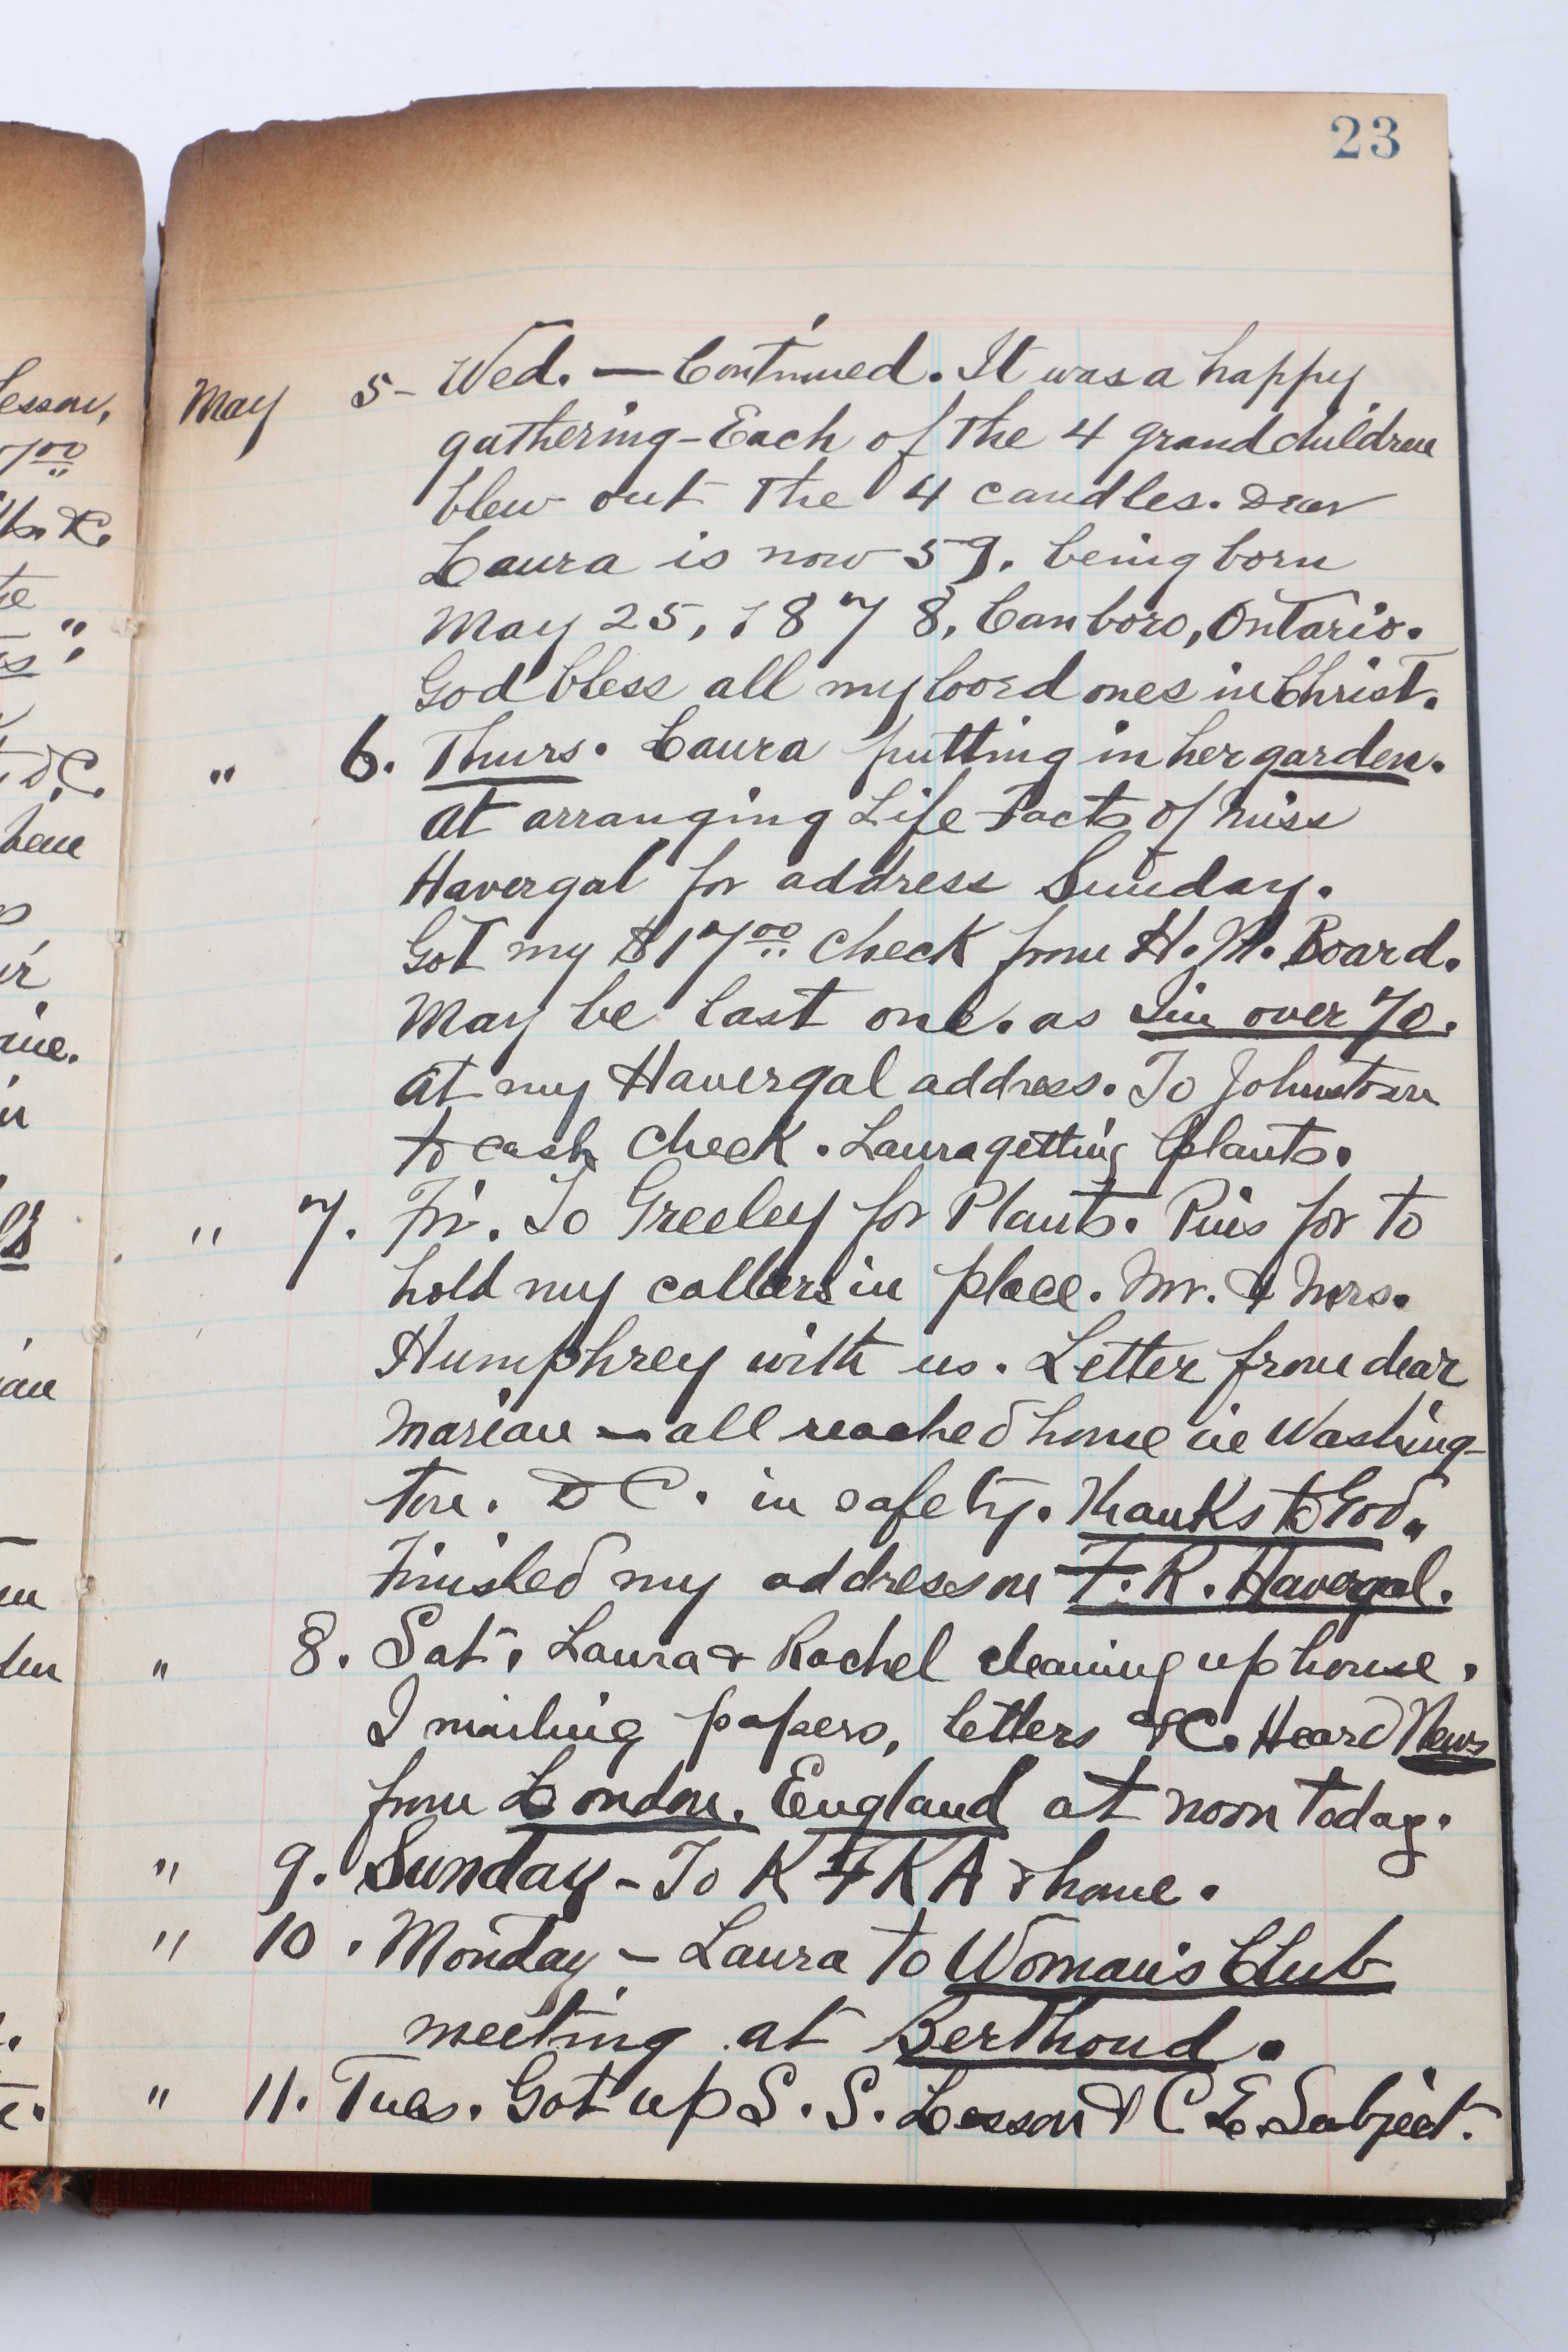 23
May 5- Wed. — Contin'ued. It was a happy
gathering - Each of the 4 grandchildren
blew out the 4 candles. Dear
Laura is now 59. being born
May 25, 1878, Canboro, Ontario.
God bless all my loved ones in Christ.
" 6. Thurs. Laura putting in her garden.
At arranging Life Facts of Miss
Havergal for address Sunday.
Got my $17.00 check from H. M. Board.
May be last one. as I'm over 70.
At my Havergal address. To Johnstown
to cash check. Laura getting plants.
" 7. Fri. To Greeley for Plants. Pins for to
hold my collars in place. Mr. & Mrs.
Humphrey with us. Letter from dear
Marian — all reached home in Washing-
ton. D C. in safety. Thanks to God.
Finished my address on F. R. Havergal.
" 8. Sat. Laura & Rachel cleaning up house.
I mailing papers, letters &C. Heard News
from London. England at noon today.
" 9. Sunday - To K F K A & home.
" 10. Monday - Laura to Woman's Club
meeting at Berthoud.
" 11. Tues. Got up S. S. Lesson & C E. Subject.